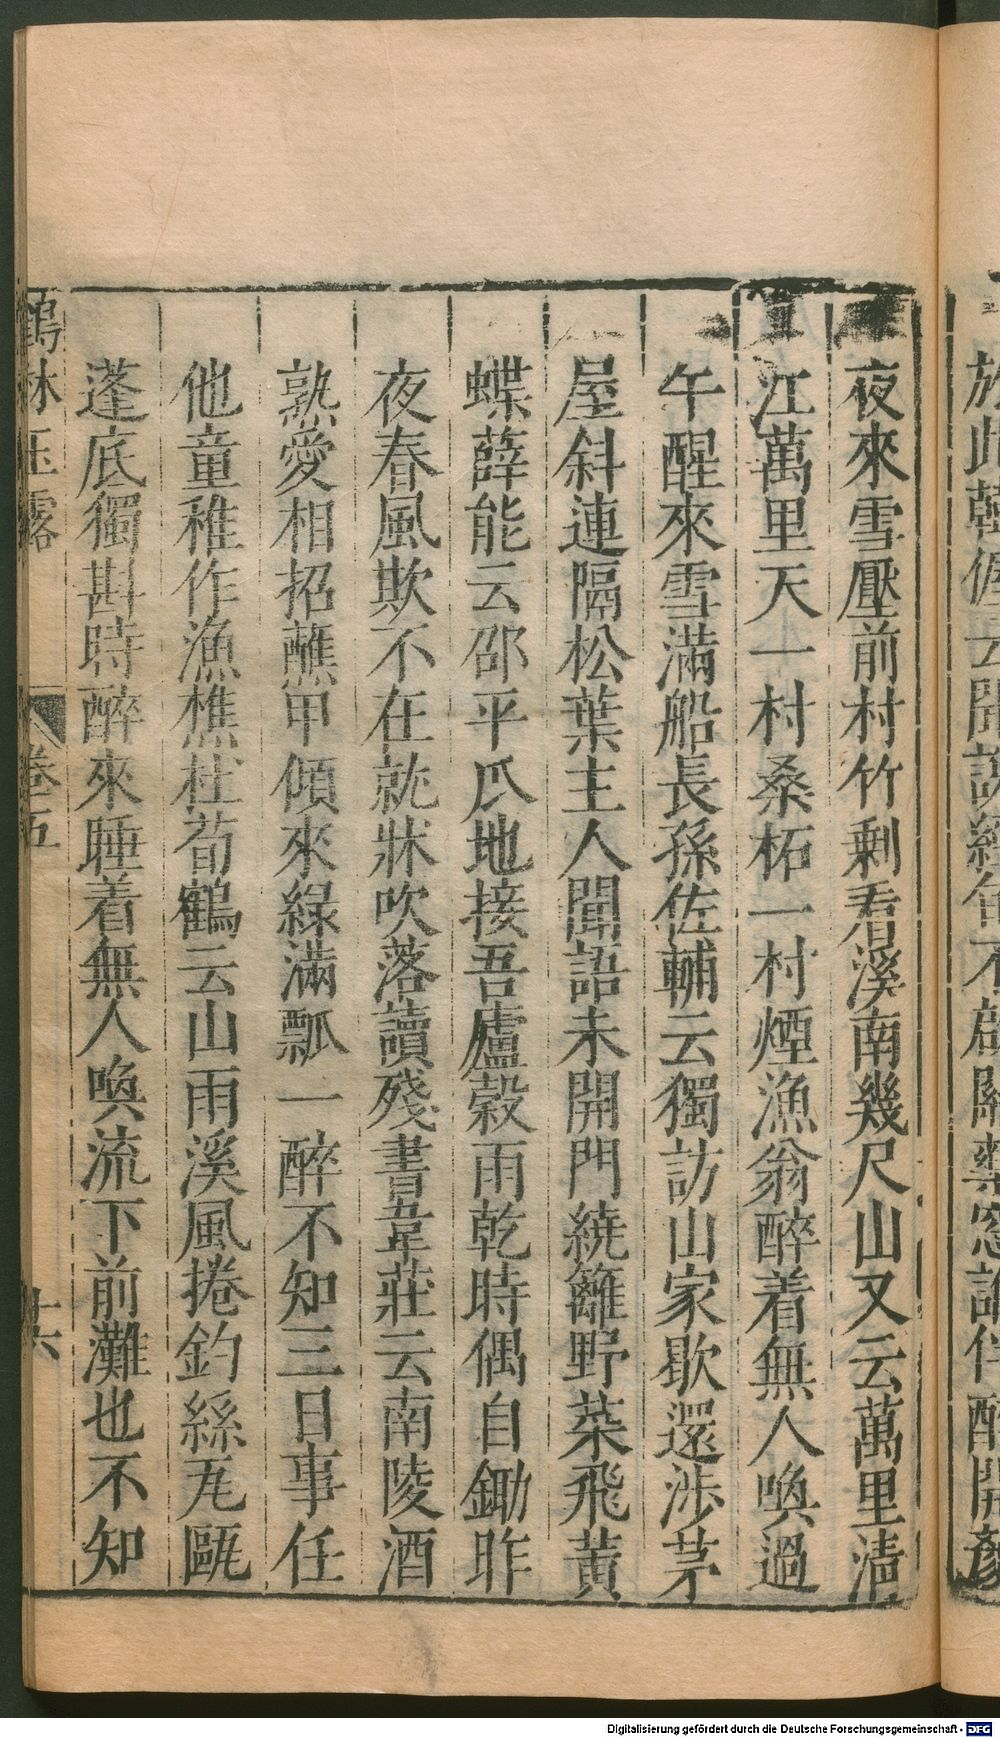 夜來雪壓前村竹剩看溪南幾尺山又云萬里淸
江萬里天一村桑柘一村煙漁翁醉着無人喚過
午醒來雪滿船長孫佐輔云獨訪山家歇還涉茅
屋斜連隔松葉主人聞語未開門繞籬野菜飛黃
蝶薛能云邵平瓜地接吾廬穀雨乾時偶自鋤昨
夜春風欺不在就牀吹落讀殘書韋莊云南陵酒
熟愛相招蘸甲傾來綠滿瓢一醉不知三日事任
他童稚作漁樵杜荀鶴云山雨溪風捲釣絲瓦甌
蓬底獨斟時醉來睡着無人喚流下前灘也不知
鶴林玉露
卷五
十六
Digitalisierung gefördert durch die Deutsche Forschungsgemeinschaft - DFG